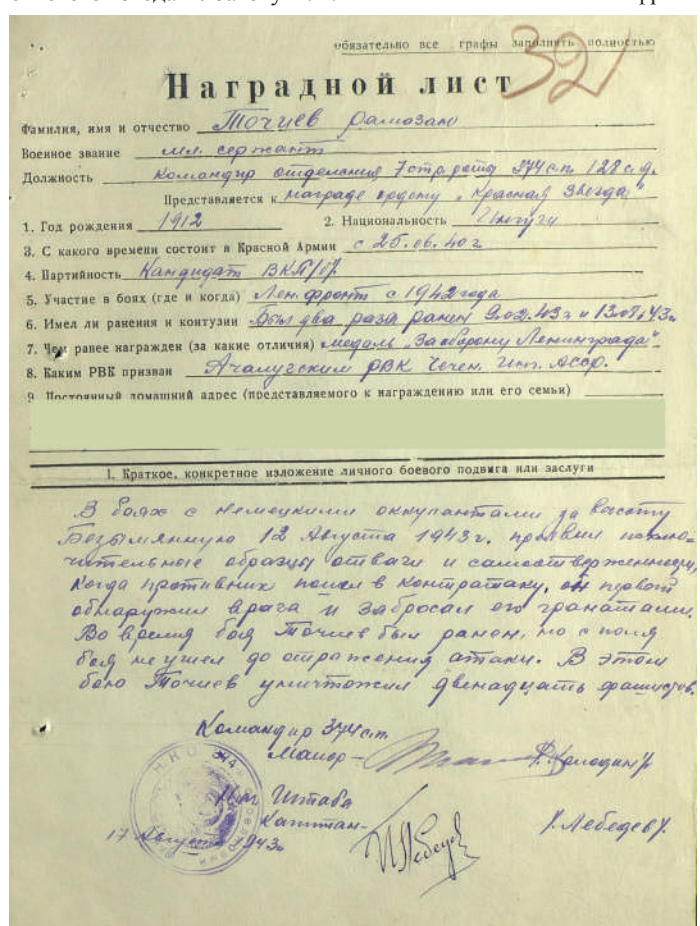 обязательно все графы заполнить полностью
32
Наградной лист
Фамилия, имя и отчество Точиев Рамазан
Военное звание мл. сержант
Должность Командир отделения 7 стр. роты 374 с.п. 128 с.д.
Представляется к награде ордену „Красная Звезда"
1. Год рождения 1912 2. Национальность Ингуш
3. С какого времени состоит в Красной Армии с 25.06.40г
4. Партийность Кандидат ВКП/б/
5. Участие в боях (где и когда) Лен. фронт с 1942 года
6. Имел ли ранения и контузии Был два раза ранен 9.02.43г и 13.08.43г
7. Чем ранее награжден (за какие отличия) медаль „За оборону Ленинграда"
8. Каким РВК призван Ачалугским РВК Чечен. Инг. АССР.
9. Постоянный домашний адрес (представляемого к награждению или его семьи)
I. Краткое, конкретное изложение личного боевого подвига или заслуги
В боях с немецкими оккупантами за высоту
Безымянную 12 Августа 1943г. проявил исклю-
чительные образцы отваги и самоотверженности,
когда противник пошел в контратаку, он первым
обнаружил врага и забросал его гранатами.
Во время боя Точиев был ранен, но с поля
боя не ушел до отражения атаки. В этом
бою Точиев уничтожил двенадцать фашистов.
Командир 374 с.п.
Майор - /Колодин/
Нач. Штаба
Капитан - /Лебедев/
17 Августа 1943г